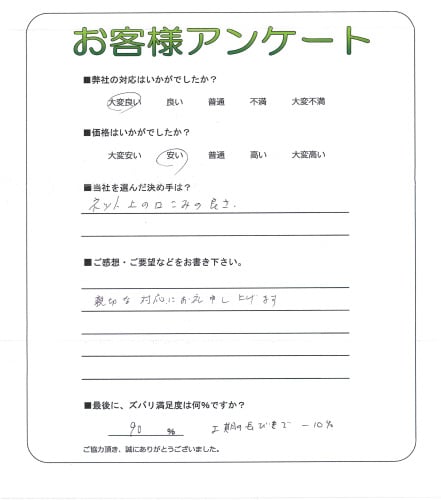 お客様アンケート
■弊社の対応はいかがでしたか？
大変良い 良い 普通 不満 大変不満
■価格はいかがでしたか？
大変安い 安い 普通 高い 大変高い
■当社を選んだ決め手は？
ネット上の口こみの良さ.
■ご感想・ご要望などをお書き下さい。
親切な対応にお礼申し上げます
■最後に、ズバリ満足度は何%ですか？
90 % 工期の延びまで -10%
ご協力頂き、誠にありがとうございました。